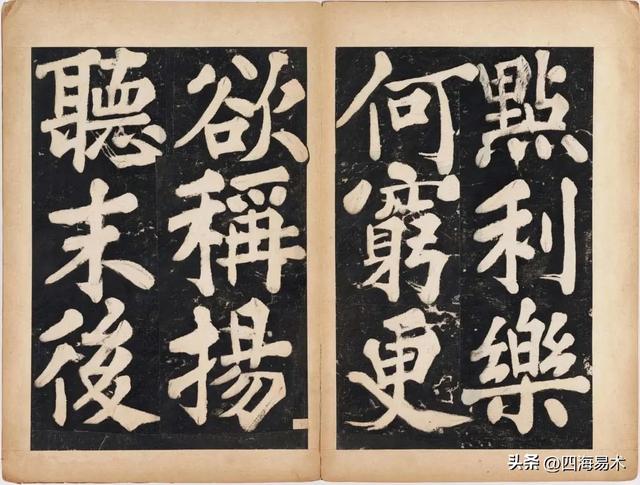 點利樂
何窮更
欲稱揚
聽末後
头条 @四海易木